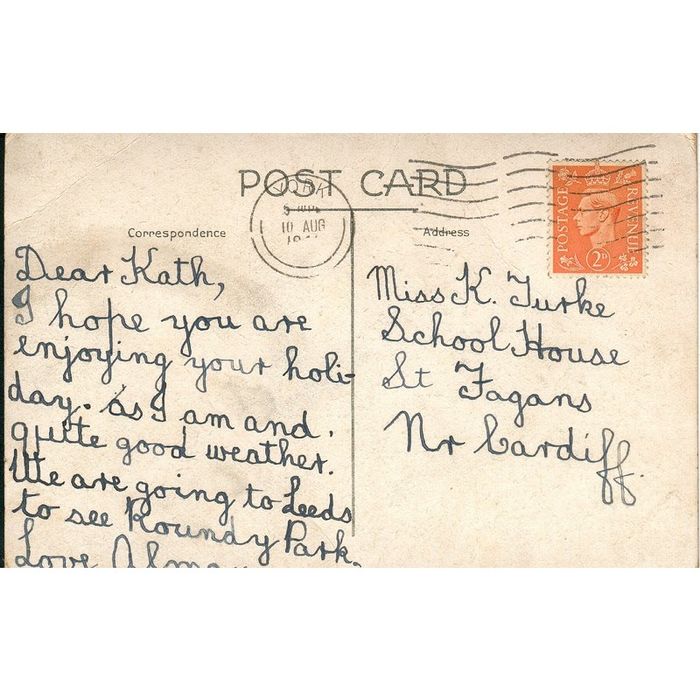 POST CARD
10 AUG
POSTAGE REVENUE
2D
Correspondence
Address
Dear Kath,
I hope you are
enjoying your holi-
day. as I am and.
quite good weather.
We are going to Leeds
to see Roundy Park.
Love Alma
Miss K. Turke
School House
St Fagans
Nr Cardiff.